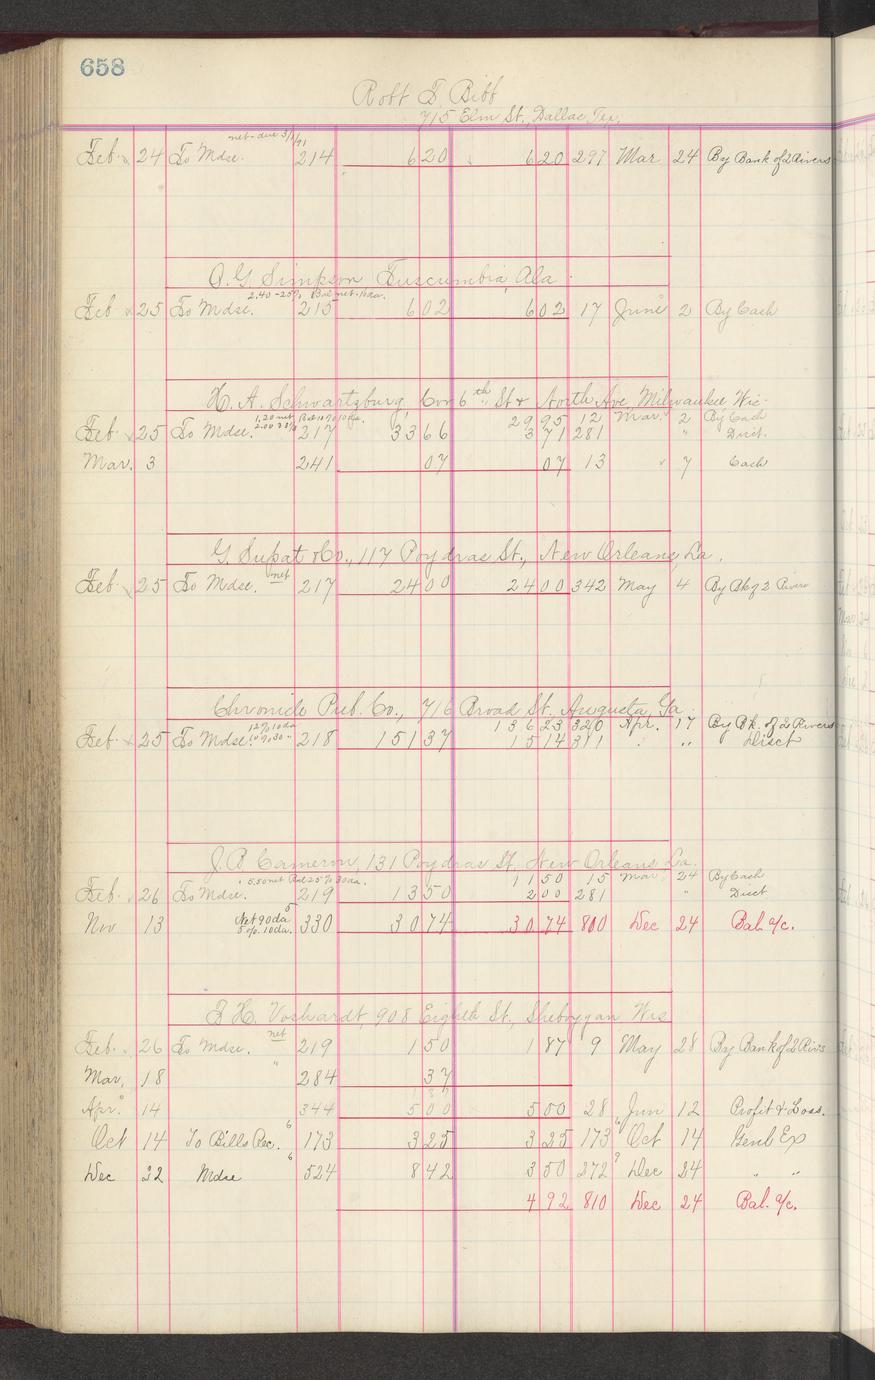 658
Robt F. Bibb
715 Elm St., Dallas, Tex.
net - due 3/1/91
Feb. 24 To Mdse. 214 6 20 6 20 297 Mar 24 By Bank of 2 Rivers
O. G. Simpson Tuscumbia, Ala.
2.40 - 25% Bal net - 10 da.
Feb. 25 To Mdse. 215 6 02 6 02 17 June 2 By Cash
H. A. Schwartzburg, Cor 6th St & North Ave, Milwaukee Wis.
1.20 net 10 da. 29 95 12 Mar. 2 By Cash
Feb. 25 To Mdse. 217 33 66 3 71 281 " Disct.
Mar. 3 241 07 07 13 7 Cash
G. Supat & Co., 117 Poydras St., New Orleans, La.
Feb. 25 To Mdse. net 217 24 00 24 00 342 May 4 By Bk of 2 Rivers
Chronicle Pub. Co., 716 Broad St. Augusta, Ga.
12% 10 da 136 23 320 Apr. 17 By Bk. of 2 Rivers
Feb. 25 To Mdse. 10% 30 " 218 151 37 15 14 311 " " Disct
J. B. Cameron, 131 Poydras St, New Orleans La.
5.50 net Bal 25% 30 da. 11 50 15 Mar 24 By Cash
Feb. 26 To Mdse. 219 13 50 2 00 281 " Disct
Nov 13 Net 90 da 5% 10 da. 330 30 74 30 74 810 Dec 24 Bal. a/c.
F. H. Voshardt, 908 Eighth St., Sheboygan Wis
Feb. 26 To Mdse. net 219 1 50 1 87 9 May 28 By Bank of 2 Rivs
Mar. 18 " 284 37
Apr. 14 344 5 00 5 00 28 Jun 12 Profit & Loss.
Oct 14 To Bills Rec. 6 173 3 25 3 25 173 6 Oct 14 Genl Ex
Dec 22 Mdse 6 524 8 42 3 50 272 9 Dec 24 " "
4 92 810 Dec 24 Bal. a/c.